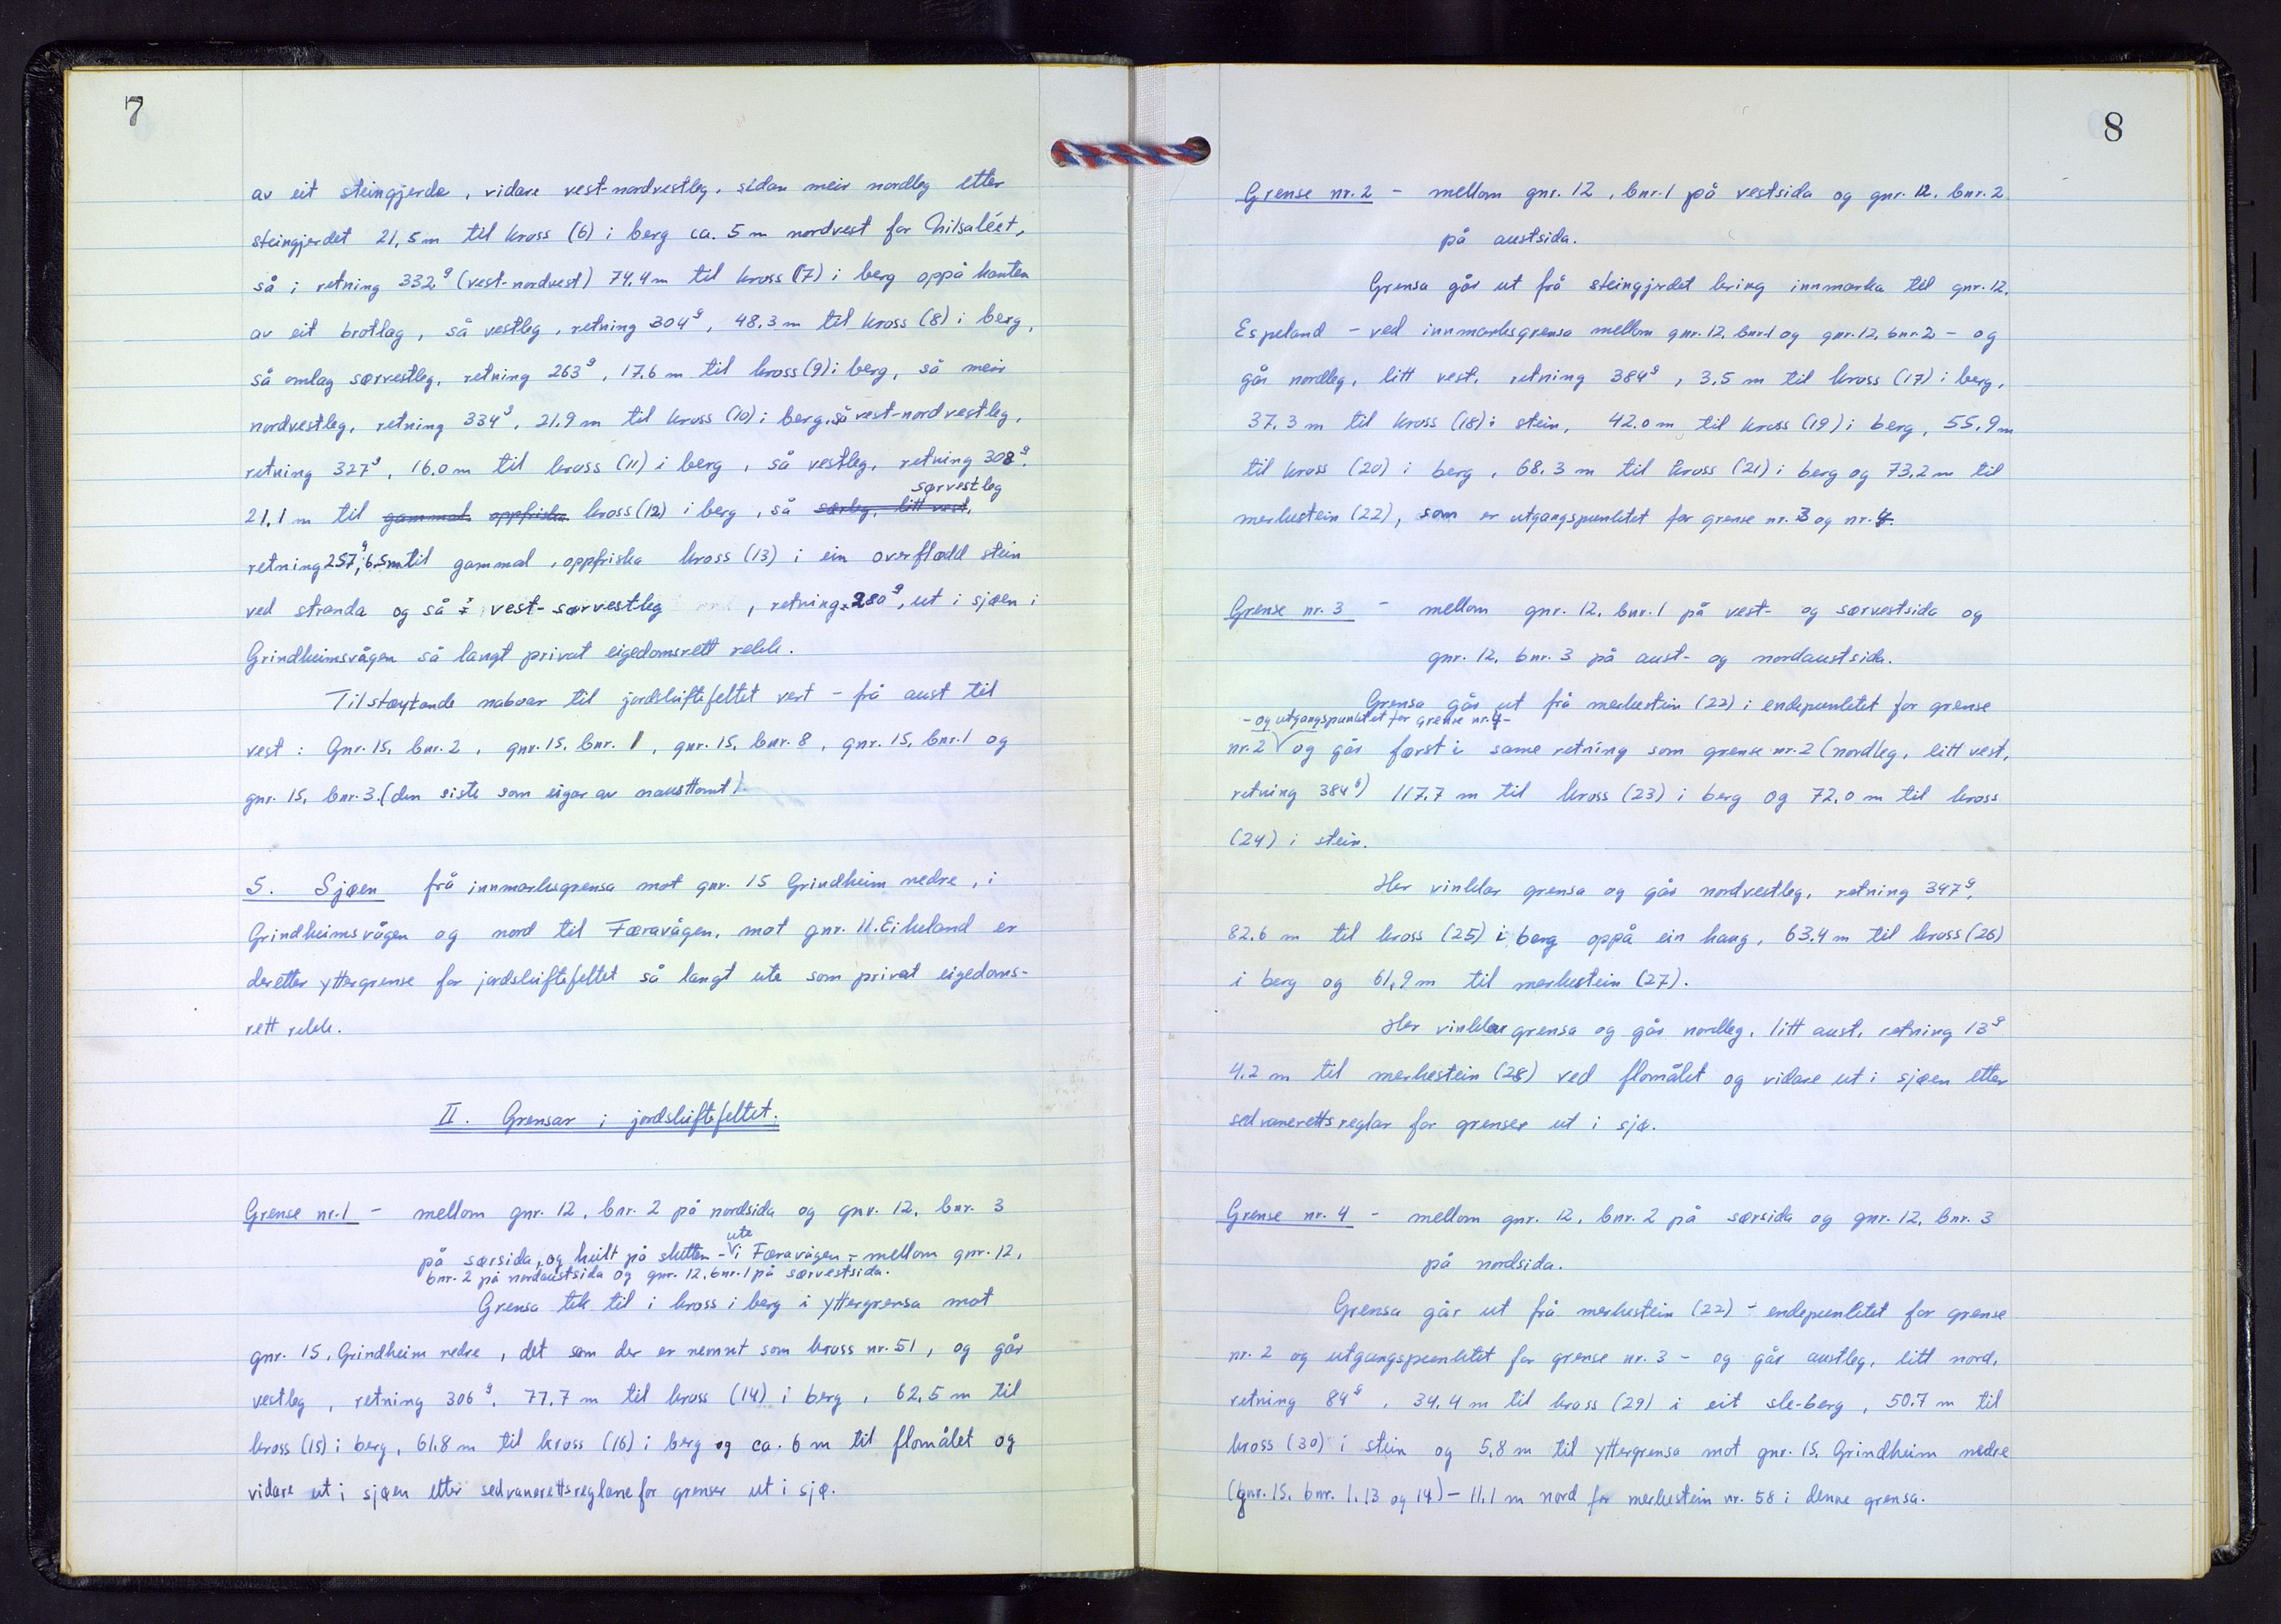 7
av eit steingjerde, vidare vest-nordvestleg, sidan meir nordleg etter
steingjerdet 21,5 m til kross (6) i berg ca. 5 m nordvest for Nilsaléet,
så i retning 332g (vest-nordvest) 74,4 m til kross (7) i berg oppå kanten
av eit brotlag, så vestleg, retning 304g, 48,3 m til kross (8) i berg,
så omlag sørvestleg, retning 263g, 17,6 m til kross (9) i berg, så meir
nordvestleg, retning 334g, 21,9 m til kross (10) i berg, så vest-nordvestleg,
retning 327g, 16,0 m til kross (11) i berg, så vestleg, retning 308g,
sørvestleg
21,1 m til gammal oppfriska kross (12) i berg, så sørleg, litt vest,
retning 257g, 6,5 m til gammal, oppfriska kross (13) i ein overflødd stein
ved stranda og så vest-sørvestleg, retning 280g, ut i sjøen i
Grindheimsvågen så langt privat eigedomsrett rekk.
Tilstøytande naboar til jordskiftefeltet vert - frå aust til
vest: Gnr. 15, bnr. 2, gnr. 15, bnr. 1, gnr. 15, bnr. 8, gnr. 15, bnr. 1 og
gnr. 15, bnr. 3. (den siste som eigar av nausttomt).
5. Sjøen frå innmarksgrensa mot gnr. 15 Grindheim nedre, i
Grindheimsvågen og nord til Færavågen, mot gnr. 11. Eikeland er
deretter yttergrense for jordskiftefeltet så langt ute som privat eigedoms-
rett rekk.
II. Grensar i jordskiftefeltet.
Grense nr. 1 - mellom gnr. 12, bnr. 2 på nordsida og gnr. 12, bnr. 3
ute
på sørsida, og heilt på slutten - i Færavågen - mellom gnr. 12,
bnr. 2 på nordaustsida og gnr. 12, bnr. 1 på sørvestsida.
Grensa tek til i kross i berg i yttergrensa mot
gnr. 15, Grindheim nedre, det som der er nemnt som kross nr. 51, og går
vestleg, retning 306g, 77,7 m til kross (14) i berg, 62,5 m til
kross (15) i berg, 61,8 m til kross (16) i berg og ca. 6 m til flomålet og
vidare ut i sjøen etter sedvanerettsreglane for grenser ut i sjø.
8
Grense nr. 2 - mellom gnr. 12, bnr. 1 på vestsida og gnr. 12, bnr. 2
på austsida.
Grensa går ut frå steingjerdet kring innmarka til gnr. 12,
Espeland - ved innmarksgrensa mellom gnr. 12, bnr. 1 og gnr. 12, bnr. 2 - og
går nordleg, litt vest, retning 384g, 3,5 m til kross (17) i berg,
37,3 m til kross (18) i stein, 42,0 m til kross (19) i berg, 55,9 m
til kross (20) i berg, 68,3 m til kross (21) i berg og 73,2 m til
merkestein (22), som er utgangspunktet for grense nr. 3 og nr. 4.
Grense nr. 3 - mellom gnr. 12, bnr. 1 på vest- og sørvestsida og
gnr. 12, bnr. 3 på aust- og nordaustsida.
Grensa går ut frå merkestein (22) i endepunktet for grense
- og utgangspunktet for grense nr. 4 -
nr. 2 og går først i same retning som grense nr. 2 (nordleg, litt vest,
retning 384g) 117,7 m til kross (23) i berg og 72,0 m til kross
(24) i stein.
Her vinklar grensa og går nordvestleg, retning 347g,
82,6 m til kross (25) i berg oppå ein haug, 63,4 m til kross (26)
i berg og 61,9 m til merkestein (27).
Her vinklar grensa og går nordleg, litt aust, retning 13g
4,2 m til merkestein (28) ved flomålet og vidare ut i sjøen etter
sedvanerettsreglar for grenser ut i sjø.
Grense nr. 4 - mellom gnr. 12, bnr. 2 på sørsida og gnr. 12, bnr. 3
på nordsida.
Grensa går ut frå merkestein (22) - endepunktet for grense
nr. 2 og utgangspunktet for grense nr. 3 - og går austleg, litt nord,
retning 84g, 34,4 m til kross (29) i eit sle-berg, 50,7 m til
kross (30) i stein og 5,8 m til yttergrensa mot gnr. 15, Grindheim nedre
(gnr. 15, bnr. 1, 13 og 14) - 11,1 m nord for merkestein nr. 58 i denne grensa.